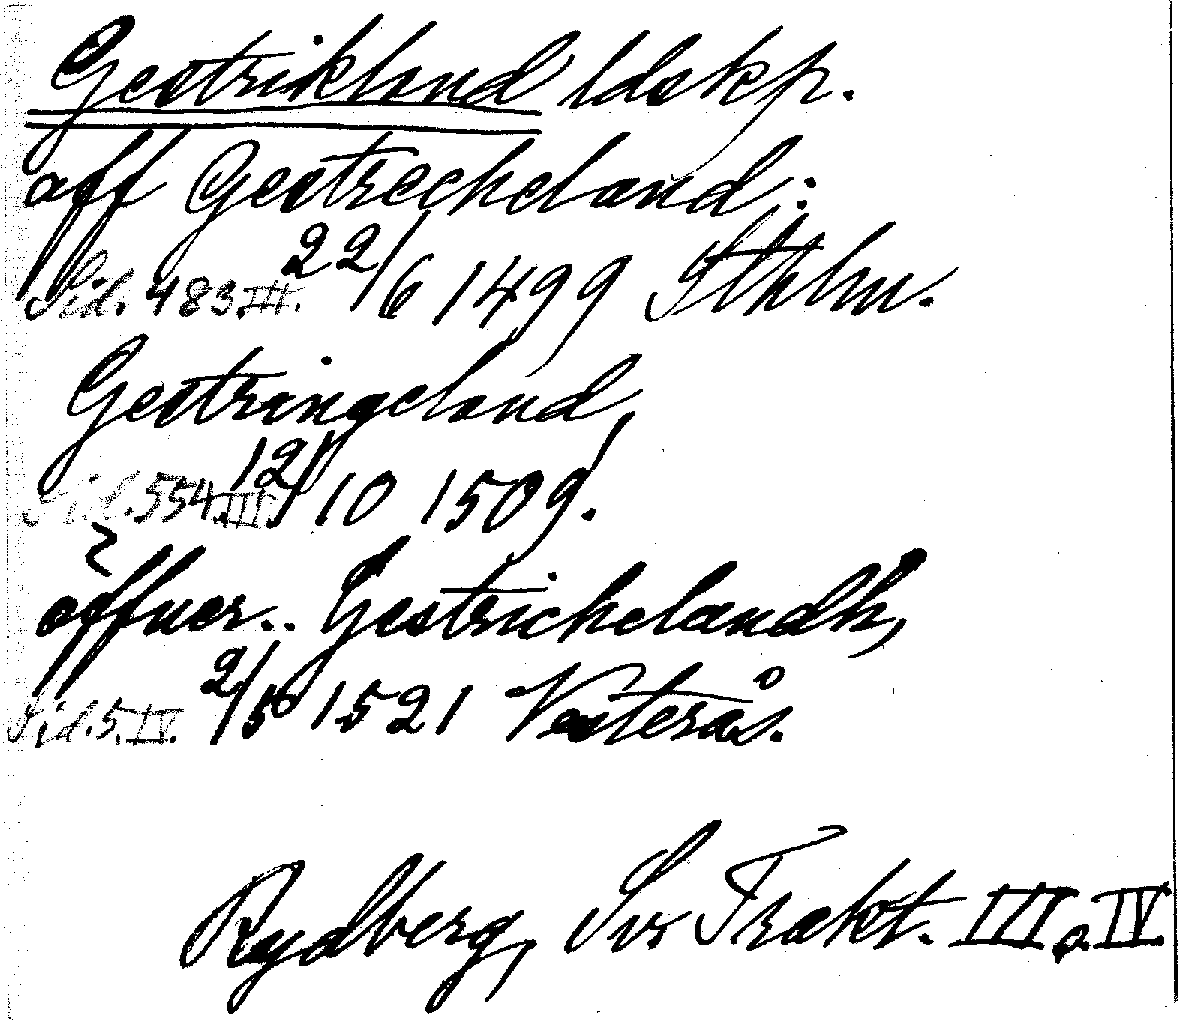 Gestrikland ldskp.
aff Gestrecheland:
Sid. 483.III. 22/6 1499 Sthlm.
Gestringeland,
Sid. 554.III. 12/10 1509.
öffuer.. Gestrichelandh,
Sid. 5. IV. 2/5 1521 Västerås.
Rydberg, Sv Trakt. III o. IV.